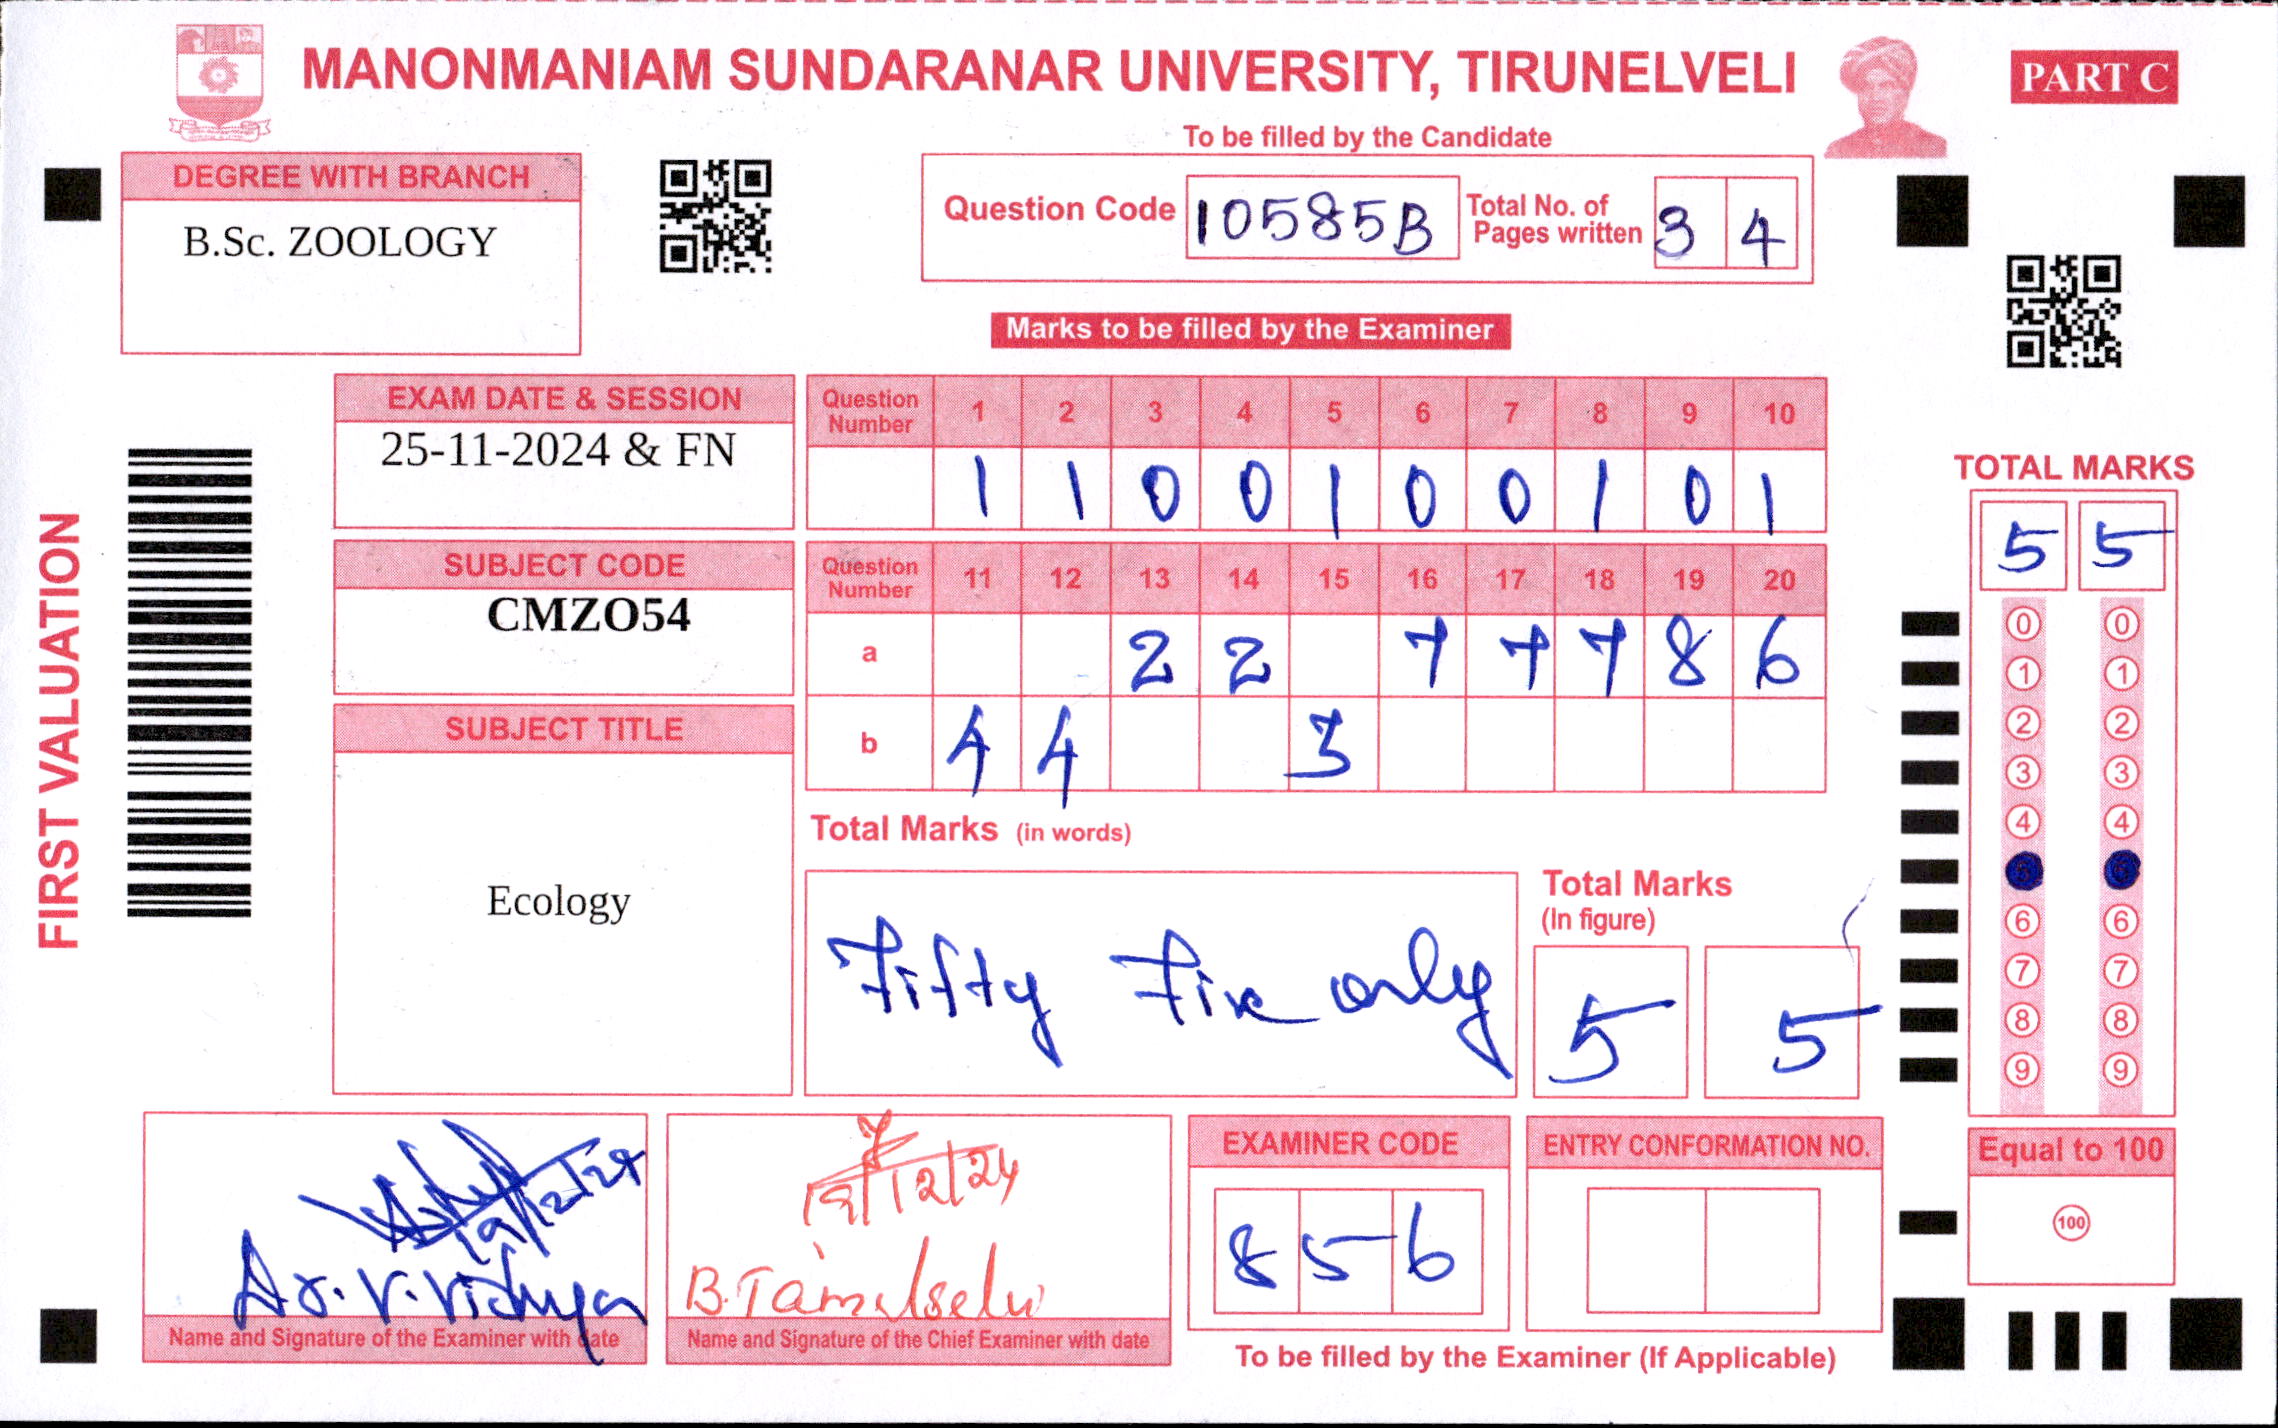 MANONMANIAM SUNDARANAR UNIVERSITY, TIRUNELVELI
PART C
To be filled by the Candidate
DEGREE WITH BRANCH
B.Sc. ZOOLOGY
Question Code 10585B Total No. of Pages written 3 4
Marks to be filled by the Examiner
EXAM DATE & SESSION
25-11-2024 & FN
Question Number 1 2 3 4 5 6 7 8 9 10
1 1 0 0 1 0 0 1 0 1
SUBJECT CODE
CMZO54
Question Number 11 12 13 14 15 16 17 18 19 20
a 2 2 7 7 7 8 6
b 4 4 3
SUBJECT TITLE
Ecology
Total Marks (in words)
Fifty Five only
Total Marks
(In figure)
5 5
TOTAL MARKS
5 5
0 0
1 1
2 2
3 3
4 4
6 6
7 7
8 8
9 9
Equal to 100
100
FIRST VALUATION
19/12/24
Dr. V. Vidhya
Name and Signature of the Examiner with date
19/12/24
B. Tamilselvi
Name and Signature of the Chief Examiner with date
EXAMINER CODE
8 5 6
ENTRY CONFORMATION NO.
To be filled by the Examiner (If Applicable)